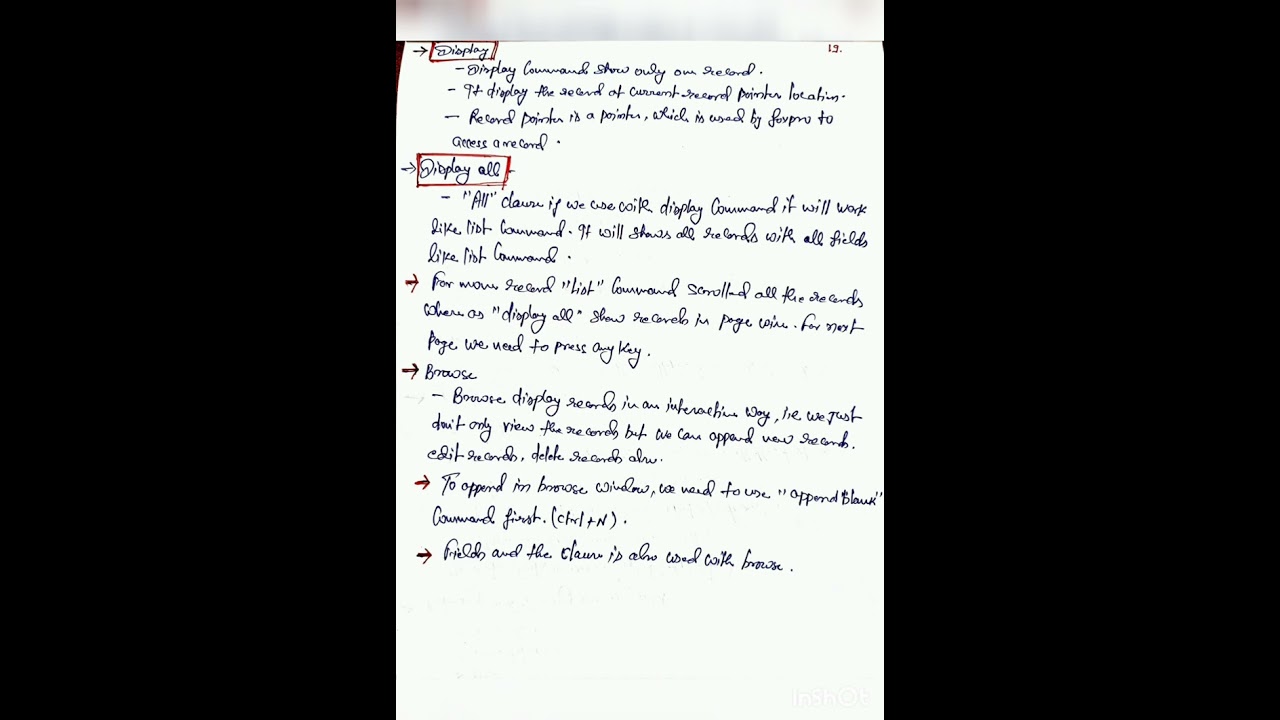 → Display 19.
- Display Command show only one record.
- It display the record at current record pointer location.
- Record pointer is a pointer, which is used by foxpro to
access a record.
→ Display all -
- "All" clause if we use with display Command it will work
like list Command. It will shows all records with all fields
like list Command.
→ For more record "List" Command scrolled all the records
where as "display all" show records in page wise. For next
Page we need to press any key.
→ Browse
- Browse display records in an interactive way, i.e we just
don't only view the records but we can append new records.
edit records, delete records also.
→ To append in browse window, we need to use "append Blank"
Command first. (Ctrl+N).
→ Fields and the clause is also used with browse.
InShOt